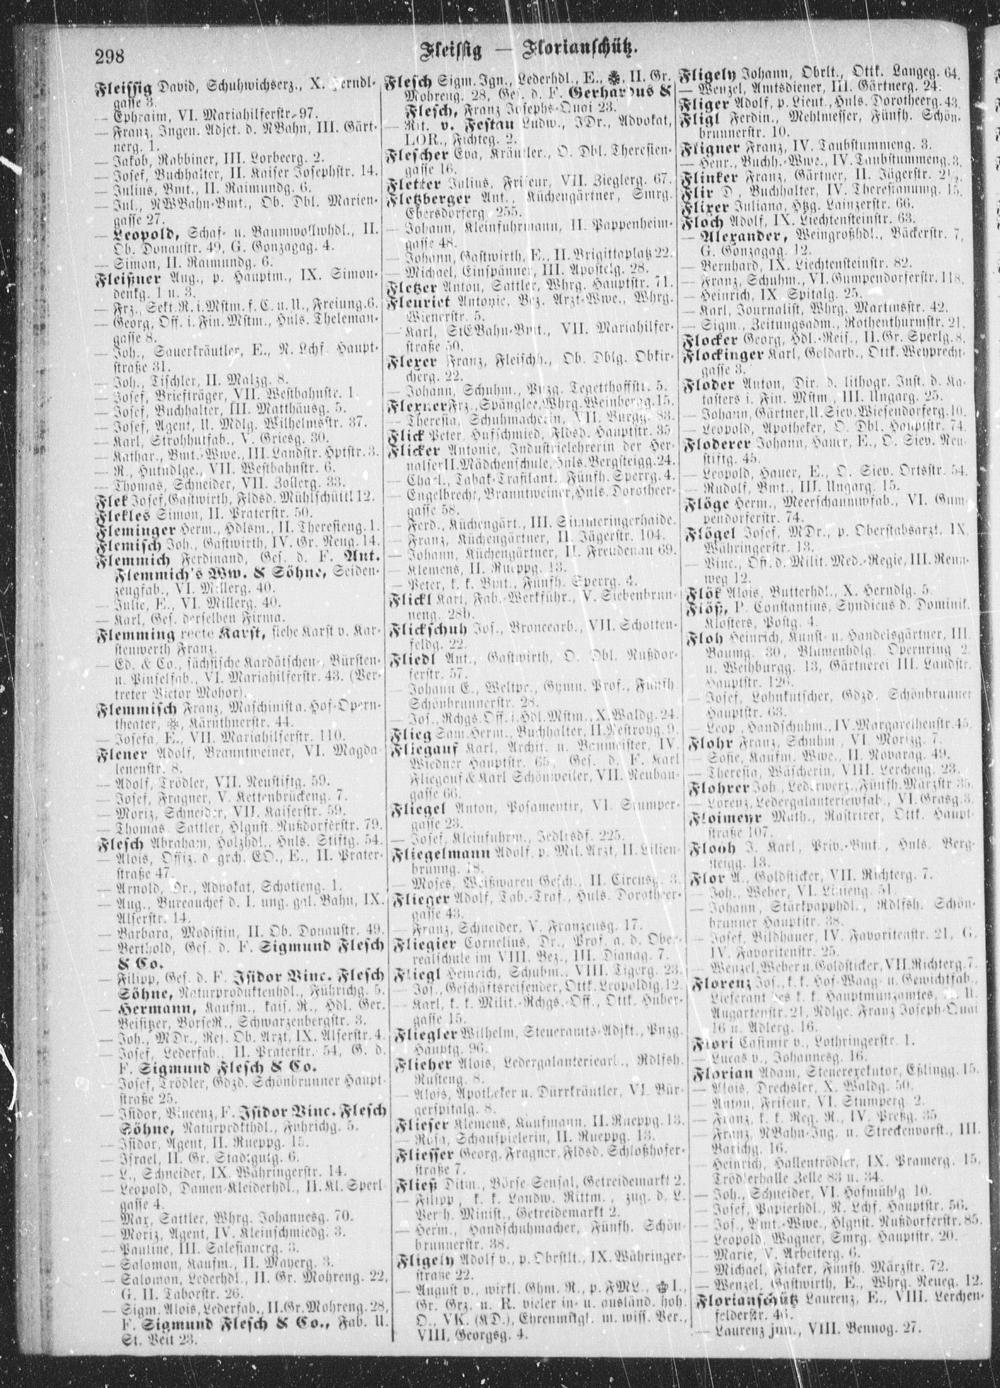 298
Fleissig — Florianschütz.
Fleissig David, Schuhwichserz., X. Ferndl-
gasse 3.
— Ephraim, VI. Mariahilferstr. 97.
— Franz, Ingen. Adjct. d. NBahn, III. Gärt-
nerg. 1.
— Jakob, Rabbiner, III. Lorbeerg. 2.
— Josef, Buchhalter, II. Kaiser Josephstr. 14.
— Julius, Bmt., II. Raimundg. 6.
— Jul., NWBahn-Bmt., Ob. Dbl. Marien-
gasse 27.
— Leopold, Schaf- u. Baumwollwhdl., II.
Ob. Donaustr. 49, G. Gonzagag. 4.
— Simon, II. Raimundg. 6.
Fleißner Aug., p. Hauptm., IX. Simon-
denkg. 1 u. 3.
— Frz., Sekt.R. i. Mstm. f. C. u. U., Freiung 6.
— Georg, Off. i. Fin. Mstm., Huls. Theleman-
gasse 8.
— Joh., Sauerkräutler, E., N. Lchf. Haupt-
straße 31.
— Joh., Tischler, II. Malzg. 8.
— Josef, Briefträger, VII. Westbahnstr. 1.
— Josef, Buchhalter, III. Matthäusg. 5.
— Josef, Agent, U. Mdlg. Wilhelmsstr. 37.
— Karl, Strohhutfab., V. Griesg. 30.
— Kathar., Bmt.-Wwe., III. Landstr. Hptstr. 3.
— R., Hutndlge., VII. Westbahnstr. 6.
— Thomas, Schneider, VII. Zollerg. 33.
Flek Josef, Gastwirth, Fldsd. Mühlschüttl 12.
Flekles Simon, II. Praterstr. 50.
Fleminger Herm., Hdlsm., II. Theresieng. 1.
Flemisch Joh., Gastwirth, IV. Gr. Neug. 14.
Flemmich Ferdinand, Ges. d. F. Ant.
Flemmich's Ww. & Söhne, Seiden-
zeugfab., VI. Millerg. 40.
— Julie, E., VI. Millerg. 40.
— Karl, Ges. derselben Firma.
Flemming recte Karst, siehe Karst v. Kar-
stenwerth Franz.
— Ed. & Co., sächsische Kardätschen-, Bürsten-
u. Pinselfab., VI. Mariahilferstr. 43. (Ver-
treter Victor Mohor).
Flemmisch Franz, Maschinist a. Hof-Opern-
theater, ❉, Kärnthnerstr. 44.
— Josefa, E., VII. Mariahilferstr. 110.
Flener Adolf, Branntweiner, VI. Magda
lenenstr. 8.
— Adolf, Trödler, VII. Neustiftg. 59.
— Josef, Fragner, V. Kettenbrückeng. 7.
— Moriz, Schneider, VII. Kaiserstr. 59.
— Thomas, Sattler, Hlgnst. Nußdorferstr. 79.
Flesch Abraham, Holzhdl., Huls. Stiftg. 54.
— Alois, Offiz. d. grch. CO., E., II. Prater-
straße 47.
— Arnold, Dr., Advokat, Schotteng. 1.
— Aug., Bureauchef d. I. ung. gal. Bahn, IX.
Alserstr. 14.
— Barbara, Modistin, II. Ob. Donaustr. 49.
— Berthold, Ges. d. F. Sigmund Flesch
& Co.
— Filipp, Ges. d. F. Isidor Vinc. Flesch
Söhne, Naturproduktenhdl., Führichg. 5.
— Hermann, Kaufm., kais. R., Hdl. Ger.
Beisitzer, BörseR., Schwarzenbergstr. 3.
— Joh., MDr., Res. Ob. Arzt, IX. Alserstr. 4.
— Josef, Lederfab., II. Praterstr. 54, G. d.
F. Sigmund Flesch & Co.
— Josef, Trödler, Gdzd. Schönbrunner Haupt-
straße 25.
— Isidor, Vincenz, F. Isidor Vinc. Flesch
Söhne, Naturprdkthdl., Führichg. 5.
— Isidor, Agent, II. Rueppg. 15.
— Israel, II. Gr. Stadlgutg. 6.
— L., Schneider, IX. Währingerstr. 14.
— Leopold, Damen-Kleiderhdl., II. Kl. Sperl
gasse 4.
— Max, Sattler, Whrg. Johannesg. 70.
— Moriz, Agent, IV. Kleinschmiedg. 3.
— Pauline, III. Salesianerg. 3.
— Salomon, Kaufm., II. Mayerg. 3.
— Salomon, Lederhdl., II. Gr. Mohreng. 22,
G. II. Taborstr. 26.
— Sigm. Alois, Lederfab., II. Gr. Mohreng. 28,
F. Sigmund Flesch & Co., Fab. U.
St. Veit 23.
Flesch Sigm. Ign., Lederhdl., E., ❉, II. Gr.
Mohreng. 28, Ges. d. F. Gerhardus &
Flesch, Franz Josephs-Quai 23.
— Rit. v. Festau Ludw., JDr., Advokat,
LOR., Fichteg. 2.
Flescher Eva, Kräutler., O. Dbl. Theresien-
gasse 16.
Fletter Julius, Friseur, VII. Zieglerg. 67.
Fletzberger Ant., Küchengärtner, Smrg.
Ebersdorferg. 255.
— Johann, Kleinfuhrmann, II. Pappenheim-
gasse 48.
— Johann, Gastwirth, E., II. Brigittaplatz 22.
— Michael, Einspänner, III. Apostelg. 28.
Fletzer Anton, Sattler, Whrg. Hauptstr. 71.
Fleuriet Antonie, Bez. Arzt-Wwe., Whrg.
Wienerstr. 5.
— Karl, StEBahn-Bmt., VII. Mariahilfer-
straße 50.
Flexer Franz, Fleischh., Ob. Dblg. Obkir-
cherg. 22.
— Johann, Schuhm., Pnzg. Tegetthoffstr. 5.
Flexner Frz., Spängler, Whrg. Weinberg. 15.
— Theresia, Schuhmacherin, VII. Burgg. 83.
Flick Peter, Hufschmied, Fldsd. Hauptstr. 35
Flicker Antonie, Industrielehrerin der Her-
nalser II. Mädchenschule, Huls. Bergsteigg. 24.
— Charl., Tabak-Trafikant., Fünfh. Sperrg. 4.
— Engelbrecht, Branntweiner, Huls. Dorotheer-
gasse 58.
— Ferd., Küchengärt., III. Simmeringerhaide.
— Franz, Küchengärtner, II. Jägerstr. 104.
— Johann, Küchengärtner, II. Freudenau 69.
— Klemens, II. Rueppg. 13.
— Peter, k. k. Bmt., Fünfh. Sperrg. 4.
Flickl Karl, Fab.-Werkführ., V. Siebenbrun-
neng. 28b.
Flickschuh Jos., Broncearb., VII. Schotten-
feldg. 22.
Fliedl Ant., Gastwirth, O. Dbl. Nußdor-
ferstr. 57.
— Johann E., Weltpr., Gymn. Prof., Fünfh
Schönbrunnerstr. 28.
— Jos., Rchgs.Off. i. Hdl. Mstm., X. Waldg. 24.
Flieg Sam. Herm., Buchhalter, II. Nestroyg. 9.
Fliegauf Karl, Archit. u. Baumeister, IV.
Wiedner Hauptstr. 65, Ges. d. F. Karl
Fliegauf & Karl Schönweiler, VII. Neubau-
gasse 66.
Fliegel Anton, Posamentir, VI. Stumper-
gasse 23.
— Josef, Kleinfuhrm., Jedlesdf. 225.
Fliegelmann Adolf, p. Mil. Arzt, II. Lilien-
brunng. 18.
— Moses, Weißwaren Gesch., II. Circusg. 3.
Flieger Adolf, Tab.-Traf., Huls. Dorotheer-
gasse 43.
— Franz, Schneider, V. Franzensg. 17.
Fliegier Cornelius, Dr., Prof. a. d. Ober-
realschule im VIII. Bez., III. Dianag. 7.
Fliegl Heinrich, Schuhm., VIII. Tigerg. 23.
— Jos., Geschäftsreisender, Ottk. Leopoldig. 12.
— Karl, k. k. Milit.-Rchgs.-Off., Ottk. Huber-
gasse 15.
Fliegler Wilhelm, Steueramts-Adjkt., Pnzg.
Hauptg. 96.
Flieher Alois, Ledergalanteriearl., Rdlfsh.
Rusteng. 8.
— Alois, Apotheker u. Dürrkräutler, VI. Bür-
gerspitalg. 8.
Flieser Klemens, Kaufmann, II. Rueppg. 13.
— Rosa, Schauspielerin, II. Rueppg. 13.
Fliesser Georg, Fragner, Fldsd. Schloßhofer-
straße 7.
Fließ Ditm., Börse-Sensal, Getreidemarkt 2.
— Filipp, k. k. Landw. Rittm., zug. d. L.
Verth. Minist., Getreidemarkt 2.
— Herm., Handschuhmacher, Fünfh. Schön-
brunnerstr. 38.
Fligely Adolf v., p. Obrstlt., IX. Währinger-
straße 22.
— August v., wirkl. Ghm. R., p. FML., 1.,
Gr. Grz. u. R. vieler in- u. ausländ. hoh.
O., VK. (KD.), Ehrenmitgl. m. wiss. Ver.,
VIII, Georgsg. 4.
Fligely Johann, Obrlt., Ottk. Langeg. 64.
— Wenzel, Amtsdiener, III. Gärtnerg. 24.
Fliger Adolf, p. Lieut., Huls. Dorotheerg. 43.
Fligl Ferdin., Mehlmesser, Fünfh. Schön-
brunnerstr. 10.
Fligner Franz, IV. Taubstummeng. 3.
— Henr., Buchh.-Wwe., IV. Taubstummeng. 3.
Flinker Franz, Gärtner, II. Jägerstr.
Flir D., Buchhalter, IV. Theresianumg. 15.
Flixer Juliana, Htzg. Lainzerstr. 66.
Floch Adolf, IX. Liechtensteinstr. 63.
— Alexander, Weingroßhdl., Bäckerstr. 7,
G. Gonzagag. 12.
— Bernhard, IX. Liechtensteinstr. 82.
— Franz, Schuhm., VI. Gumpendorferstr. 118.
— Heinrich, IX. Spitalg. 25.
— Karl, Journalist, Whrg. Martinsstr. 42.
— Sigm., Zeitungsadm., Rothenthurmstr. 21.
Flocker Georg, Hdl.-Reis., II. Gr. Sperlg. 8.
Flockinger Karl, Goldarb., Ottk. Weyprecht-
gasse 3.
Floder Anton, Dir. d. lithogr. Inst. d. Ka-
tasters i. Fin. Mstm., III. Ungarg. 25.
— Johann, Gärtner, U. Siev. Wiesendorferg. 10.
— Leopold, Apotheker, O. Dbl. Hauptstr. 74.
Floderer Johann, Hauer, E., O. Siev. Neu-
stiftg. 45.
— Leopold, Hauer, E., O. Siev. Ortsstr. 54.
— Rudolf, Bmt., III. Ungarg. 15.
Flöge Herm., Meerschaumwfab., VI. Gum
pendorferstr. 74.
Flögel Josef, MDr., p. Oberstabsarzt, IX.
Währingerstr. 13.
— Vinc., Off. d. Milit. Med.-Regie, III. Renn-
weg 12.
Flök Alois, Butterhdl., X. Herndlg. 5.
Flöß, P. Constantius, Syndicus d. Dominik.
Klosters, Postg. 4.
Floh Heinrich, Kunst- u. Handelsgärtner, III.
Baumg. 30, Blumenhdlg. Opernring 2
u. Weihburgg. 13, Gärtnerei III. Landstr.
Hauptstr. 126.
— Josef, Lohnkutscher, Gdzd. Schönbrunner
Hauptstr. 63.
— Leop., Handschuhm., IV. Margarethenstr. 45.
Flohr Franz, Schuhm., VI. Morizg. 7.
— Sofie, Kaufm. Wwe., II. Novarag. 49.
— Theresia, Wäscherin, VIII. Lercheng. 23.
Flohrer Joh., Lederwerz., Fünfh. Märzstr. 35.
— Lorenz, Ledergalanteriewfab., VI. Grasg. 3.
Floimeyr Math., Rastrirer, Ottk. Haupt-
straße 107.
Flooh J. Karl, Priv.-Bmt., Huls. Berg-
steigg. 13.
Flor A., Goldsticker, VII. Richterg. 7.
— Joh., Weber, VI. Linieng. 51.
— Johann, Stärkpapphdl., Rdlfsh. Schön-
brunner Hauptstr. 38.
— Josef, Bildhauer, IV. Favoritenstr. 21, G.
IV. Favoritenstr. 25.
— Wenzel, Weber u. Goldsticker, VII. Richterg. 7.
Florenz Jos., k. k. Hof-Waag- u. Gewichtfab.,
Lieferant des k. k. Hauptmünzamtes, II.
Augartenstr. 21, Ndlge. Franz Joseph-Quai
16 u. Adlerg. 16.
Fiori Casimir v., Lothringerstr. 1.
— Lucas v., Johannesg. 16.
Florian Adam, Steuerexekutor, Eßlingg. 15.
— Alois, Drechsler, X. Waldg. 50.
— Anton, Friseur, VI. Stumperg. 2.
— Franz, k. k. Reg. R., IV. Preßg. 35
— Franz, NBahn-Ing. u. Streckenvorst., III.
Barichg. 16.
— Heinrich, Hallentrödler, IX. Pramerg. 15,
Trödlerhalle Zelle 83 u. 34.
— Joh., Schneider, VI. Hofmühlg. 10.
— Josef, Papierhdl., N. Lchf. Hauptstr. 56.
— Jos., Bmt.-Wwe., Hlgnst. Nußdorferstr. 85.
— Leopold, Wagner, Smrg. Hauptstr. 20.
— Marie, V. Arbeiterg. 6.
— Michael, Fiaker, Fünfh. Märzstr. 72.
— Wenzel, Gastwirth, E., Whrg. Neueg. 12.
Florianschütz Laurenz, E., VIII. Lerchen-
felderstr. 46.
— Laurenz jun., VIII. Bennog. 27.